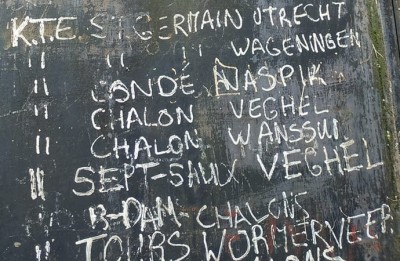 K.T.E. ST GERMAIN UTRECHT
" " " WAGENINGEN
" CONDÉ WASPIK
" CHALON VEGHEL
" CHALON WANSSUM
" SEPT-SAULX VEGHEL
R-DAM-CHALONS
" TOURS WORMERVEER